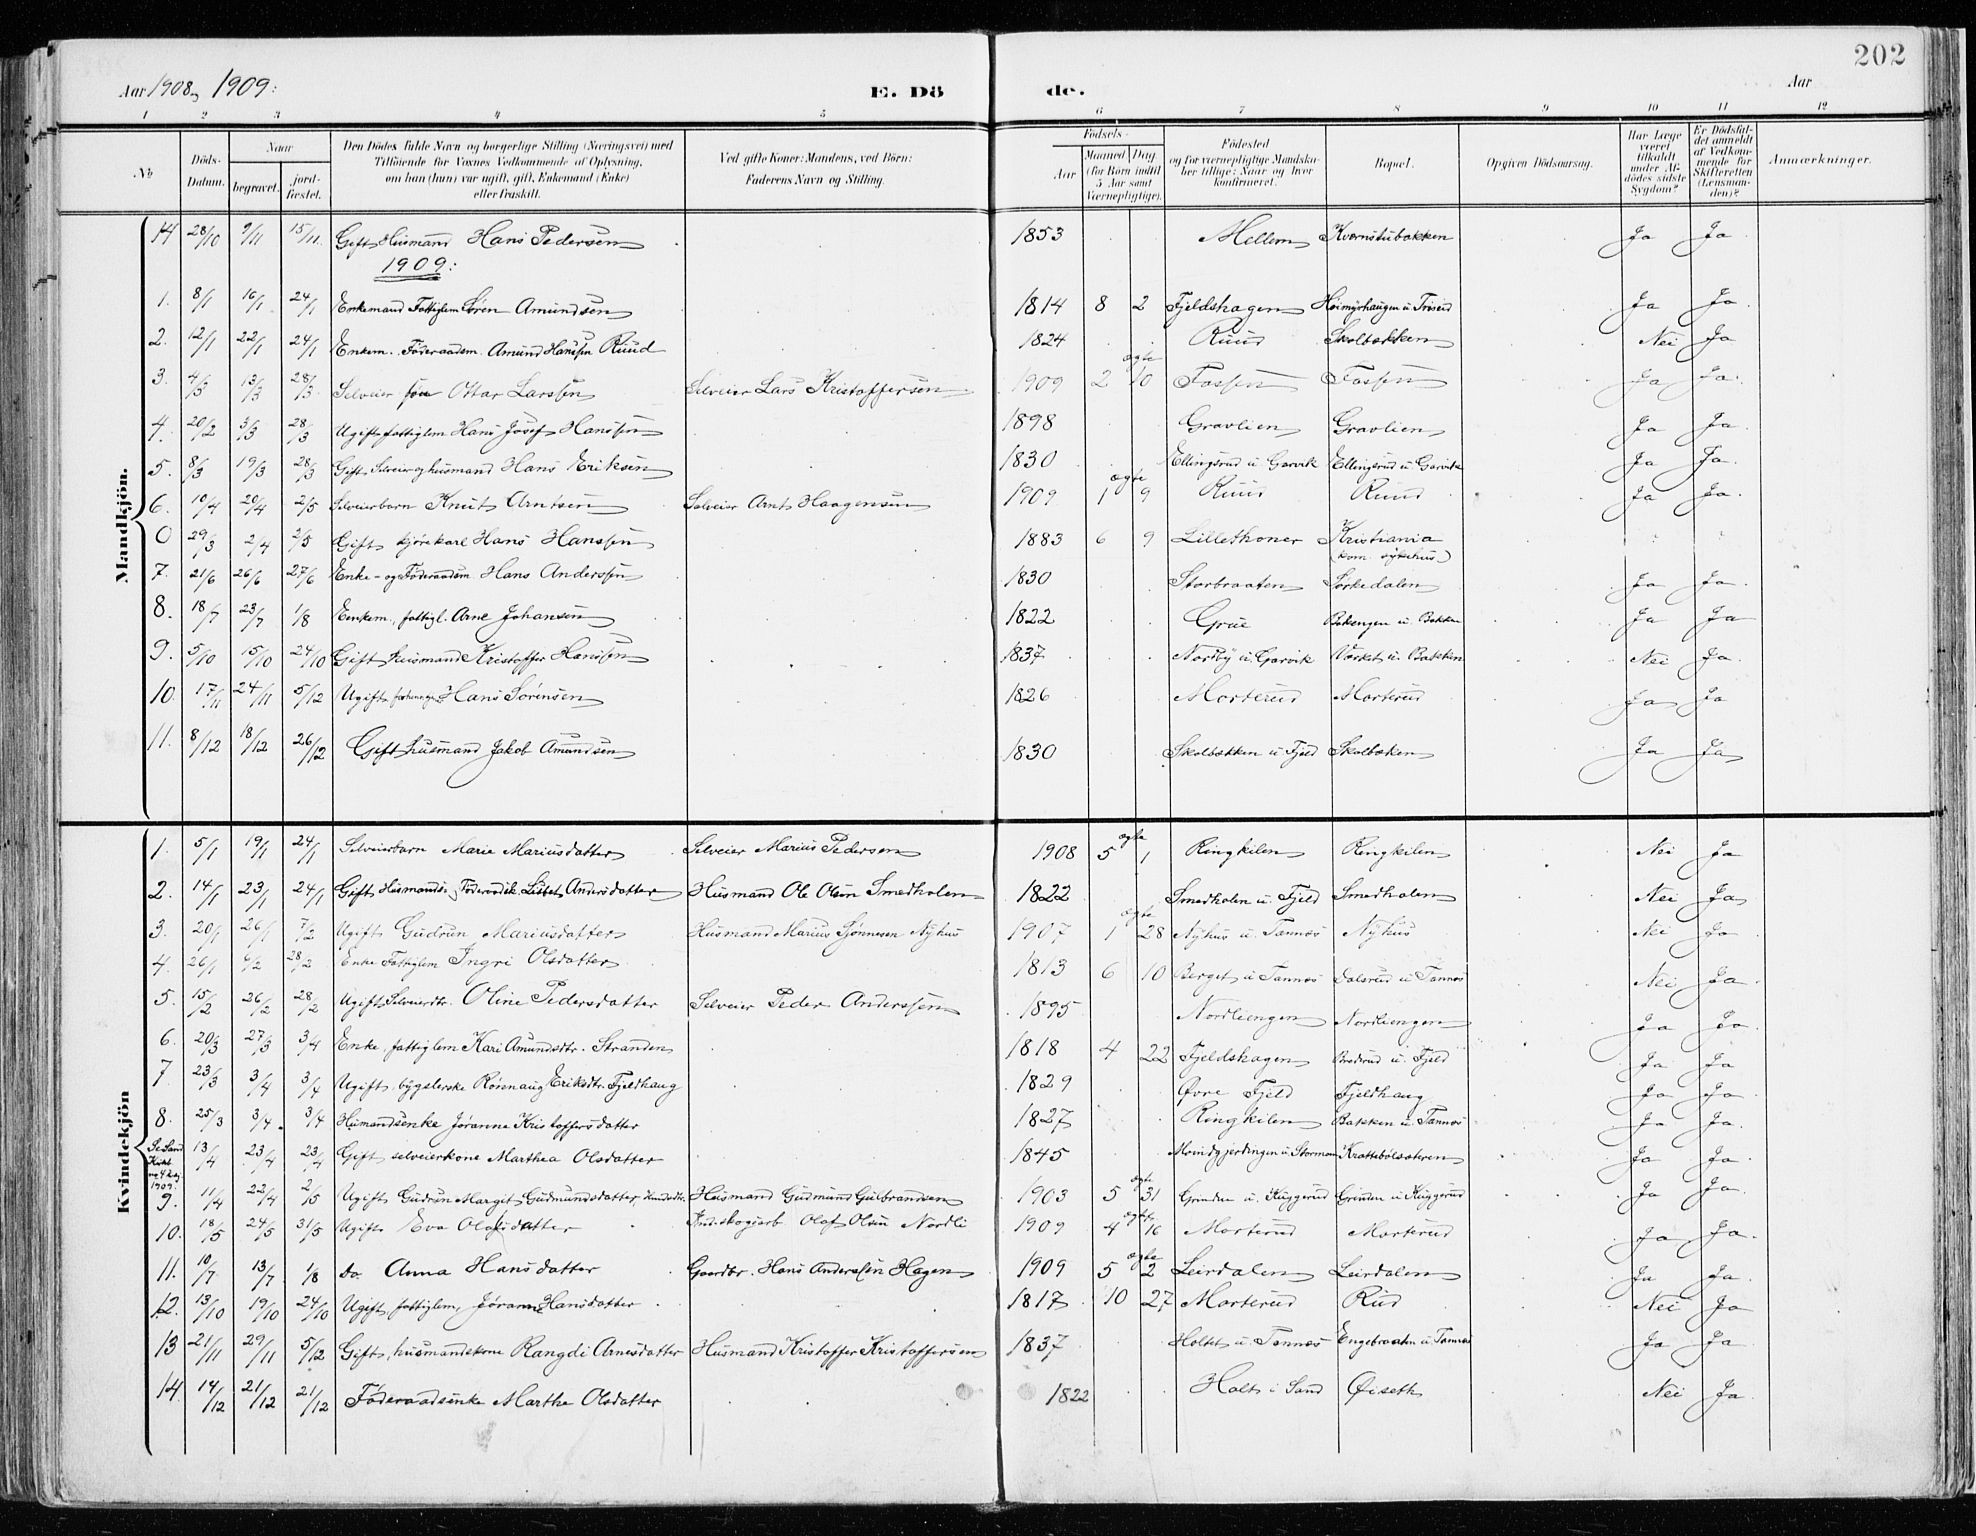 202
Aar 1908 og 1909:
E. Dö de.
Aar
1 2 3 4 5 6 7 8 9 10 11 12
No
Döds-Datum.
Naar
begravet.
jord-fæstet.
Den Dödes fulde Navn og borgerlige Stilling (Næringsvei) med
Tilföiende for Voxnes Vedkommende af Oplysning,
om han (hun) var ugift, gift, Enkemand (Enke)
eller fraskilt.
Ved gifte Koner: Mandens, ved Börn:
Faderens Navn og Stilling.
Födsels-
Aar
Maaned Dag
(for Börn indtil
5 Aar samt
Værnepligtige).
Födested
og for værnepligtige Mandska-
ber tillige: Naar og hvor
konfirmeret.
Bopæl.
Opgiven Dödsaarsag.
Har Læge
været
tilkaldt
under Af-
dödes sidste
Sygdom?
Er Dödsfal-
det anmeldt
af Vedkom-
mende for
Skifteretten
(Lensman-
den)?
Anmærkninger.
Mandkjön.
14 28/10 9/11 15/11 Gift Husmand Hans Pedersen 1853 Mellem Kvernstubakken Ja Ja
1909:
1. 8/1 16/1 24/1 Enkemand Fattiglem Søren Amundsen 1814 8 2 Fjeldshagen Heimyrhaugen u. Triserud Ja Ja
2. 12/1 22/1 24/1 Enkem. Föderaadsm. Amund Hanssen Ruud 1824 Ruud Skolbækken Nei Ja
3. 4/3 13/3 28/3 Selveier søn Ottar Larssen Selveier Lars Kristoffersen 1909 2 ægte 10 Fossen Fossen Ja Ja
4. 20/2 3/3 28/3 Ugift fattiglem Hans Josef Hanssen 1898 Gravlien Gravlien Ja Ja
5. 8/3 19/3 28/3 Gift Selveier og husmand Hans Eriksen 1830 Ellingsrud u. Garvik Ellingsrud u. Garvik Ja Ja
6. 10/4 20/4 2/5 Selveierbarn Knut Arntsen Selveier Arnt Haagensen 1909 1 ægte 9 Ruud Ruud Ja Ja
0 29/3 2/4 2/5 Gift kjørekarl Hans Hanssen 1883 6 9 Lillethoner Kristiania
(kom. sykehus)
7. 21/6 26/6 27/6 Enke- og Föderaadsm Hans Anderssen 1830 Storbraaten Sørkedalen Ja Ja
8. 18/7 23/7 1/8 Enkem., fattigl. Arne Johansen 1822 Grue Bakengen u. Bakken Ja Ja
9. 5/10 15/10 24/10 Gift husmand Kristoffer Hanssen 1837 Nordby u. Garvik Værket u. Bakken Nei Ja
10. 17/11 24/11 5/12 Ugift Hans Sørensen 1826 Morterud Morterud Ja Ja
11. 8/12 18/12 26/12 Gift husmand Jakob Amundsen 1830 Skolbækken u. Fjeld Skolbæken Ja Ja
Kvindekjön
1. 5/1 19/1 24/1 Selveierbarn Marie Mariusdatter Selveier Marius Pedersen 1908 5 ægte 1 Ringkilen Ringkilen Nei Ja
2. 14/1 23/1 24/1 Gift Husmands- Föderaadsk. Lisbet Andersdatter Husmand Ole Olsen Smedholen 1822 Smedholen u. Fjeld Smedholen Nei Ja
3. 20/1 26/1 7/2 Ugift Gudrun Mariusdatter Husmand Marius Sjönnesen Nyhus 1907 1 ægte 28 Nyhus u. Tannæs Nyhus Nei Ja
4. 26/1 6/2 28/2 Enke Fattiglem Ingri Olsdatter 1813 6 10 Berget u. Tannæs Dalsrud u. Tannæs Nei Ja
5. 15/2 26/2 28/2 Ugift Selveierdtr. Oline Pedersdatter Selveier Peder Anderssen 1895 Nordliengen Nordliengen Ja Ja
6. 20/3 27/3 3/4 Enke, fattiglem Kari Amundsdtr. Stranden 1818 4 22 Fjeldshagen Bredrud u. Fjeld Ja Ja
7. 23/3 3/4 3/4 Ugift, bygslerske Rønnaug Eriksdtr. Fjeldhaug 1829 Øvre Fjeld Fjeldhaug Ja Ja
8. 25/3 3/4 3/4 Husmandsenke Jøranne Kristoffersdatter 1827 Ringkilen Bakken u. Tannæs Ja Ja
13/4 23/4 23/4 Gift selveierkone Marthea Olsdatter 1845 Ja Ja
1909.
9. 11/4 22/4 2/5 Ugift Gudrun Margit Gudmundsdatter, Husmand Gudmund Gulbrandsen 1903 5 ægte 31 Grinden u. Kuggerud Grinden u. Kuggerud Ja Ja
10. 18/5 24/5 31/5 Ugift Eva Olafsdatter Olaf Olsen Nordli 1909 4 ægte 16 Morterud Morterud Ja Ja
11. 10/7 13/7 1/8 do. Anna Hansdatter Gaardbr. Hans Anderssen Hagen 1909 5 ægte 2 Leirdalen Leirdalen Ja Ja
12. 13/10 19/10 24/10 Ugift, fattiglem, Jøranne Hansdatter 1817 10 27 Morterud Rud Nei Ja
13 21/11 29/11 5/12 Gift, husmandskone Rangdi Arnesdatter Husmand Kristoffer Kristoffersen 1837 Holtet u. Tannæs Engebraaten u. Tannæs Ja Ja
14. 14/12 21/12 21/12 Föderaadsenke Marthe Olsdatter 1822 Holt i Sand Øiseth Nei Ja